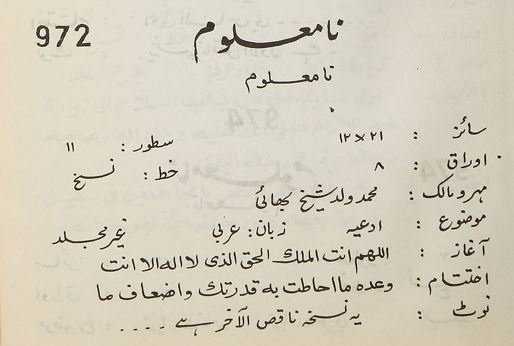 972
نامعلوم
نامعلوم
سائز : ۱۲×۲۱ سطور : ۱۱
اوراق : ۸ خط : نسخ
مہر و مالک : محمد ولد شیخ بھائی
موضوع : ادعیہ زبان : عربی غیر مجلد
آغاز : اللهم انت الملک الحق الذی لا اله الا انت
اختتام : وعده ما احاطت به قدرتك واضعاف ما
نوٹ : یہ نسخہ ناقص الآخر ہے ۔۔۔۔